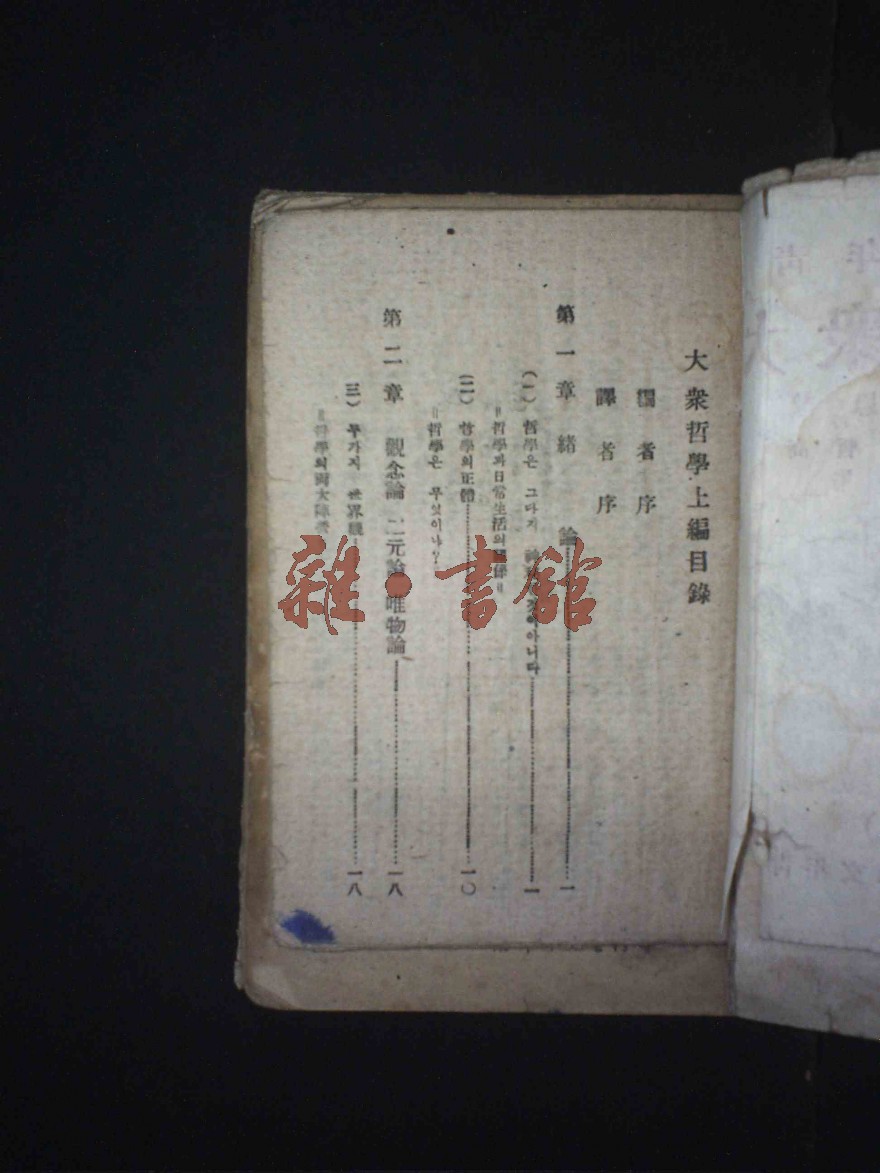 大衆哲學上編目錄
編者序
譯者序
第一章 緒論 一
(一) 哲學은 그다지 아니다 一
=哲學과日常生活의關係=
(二) 哲學의正體 一〇
=哲學은 무엇이냐=
第二章 觀念論 二元論 唯物論 一八
三) 두가지 世界觀 一八
=哲學의兩大陣營
雜·書館